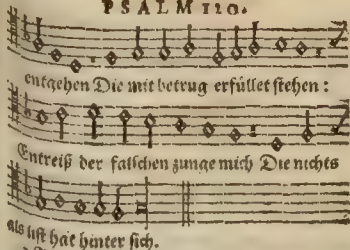 PSALM 120.
entgehen Die mit betrug erfüllet stehen:
Entreiß der falschen zunge mich Die nichts
als list hat hinter sich.